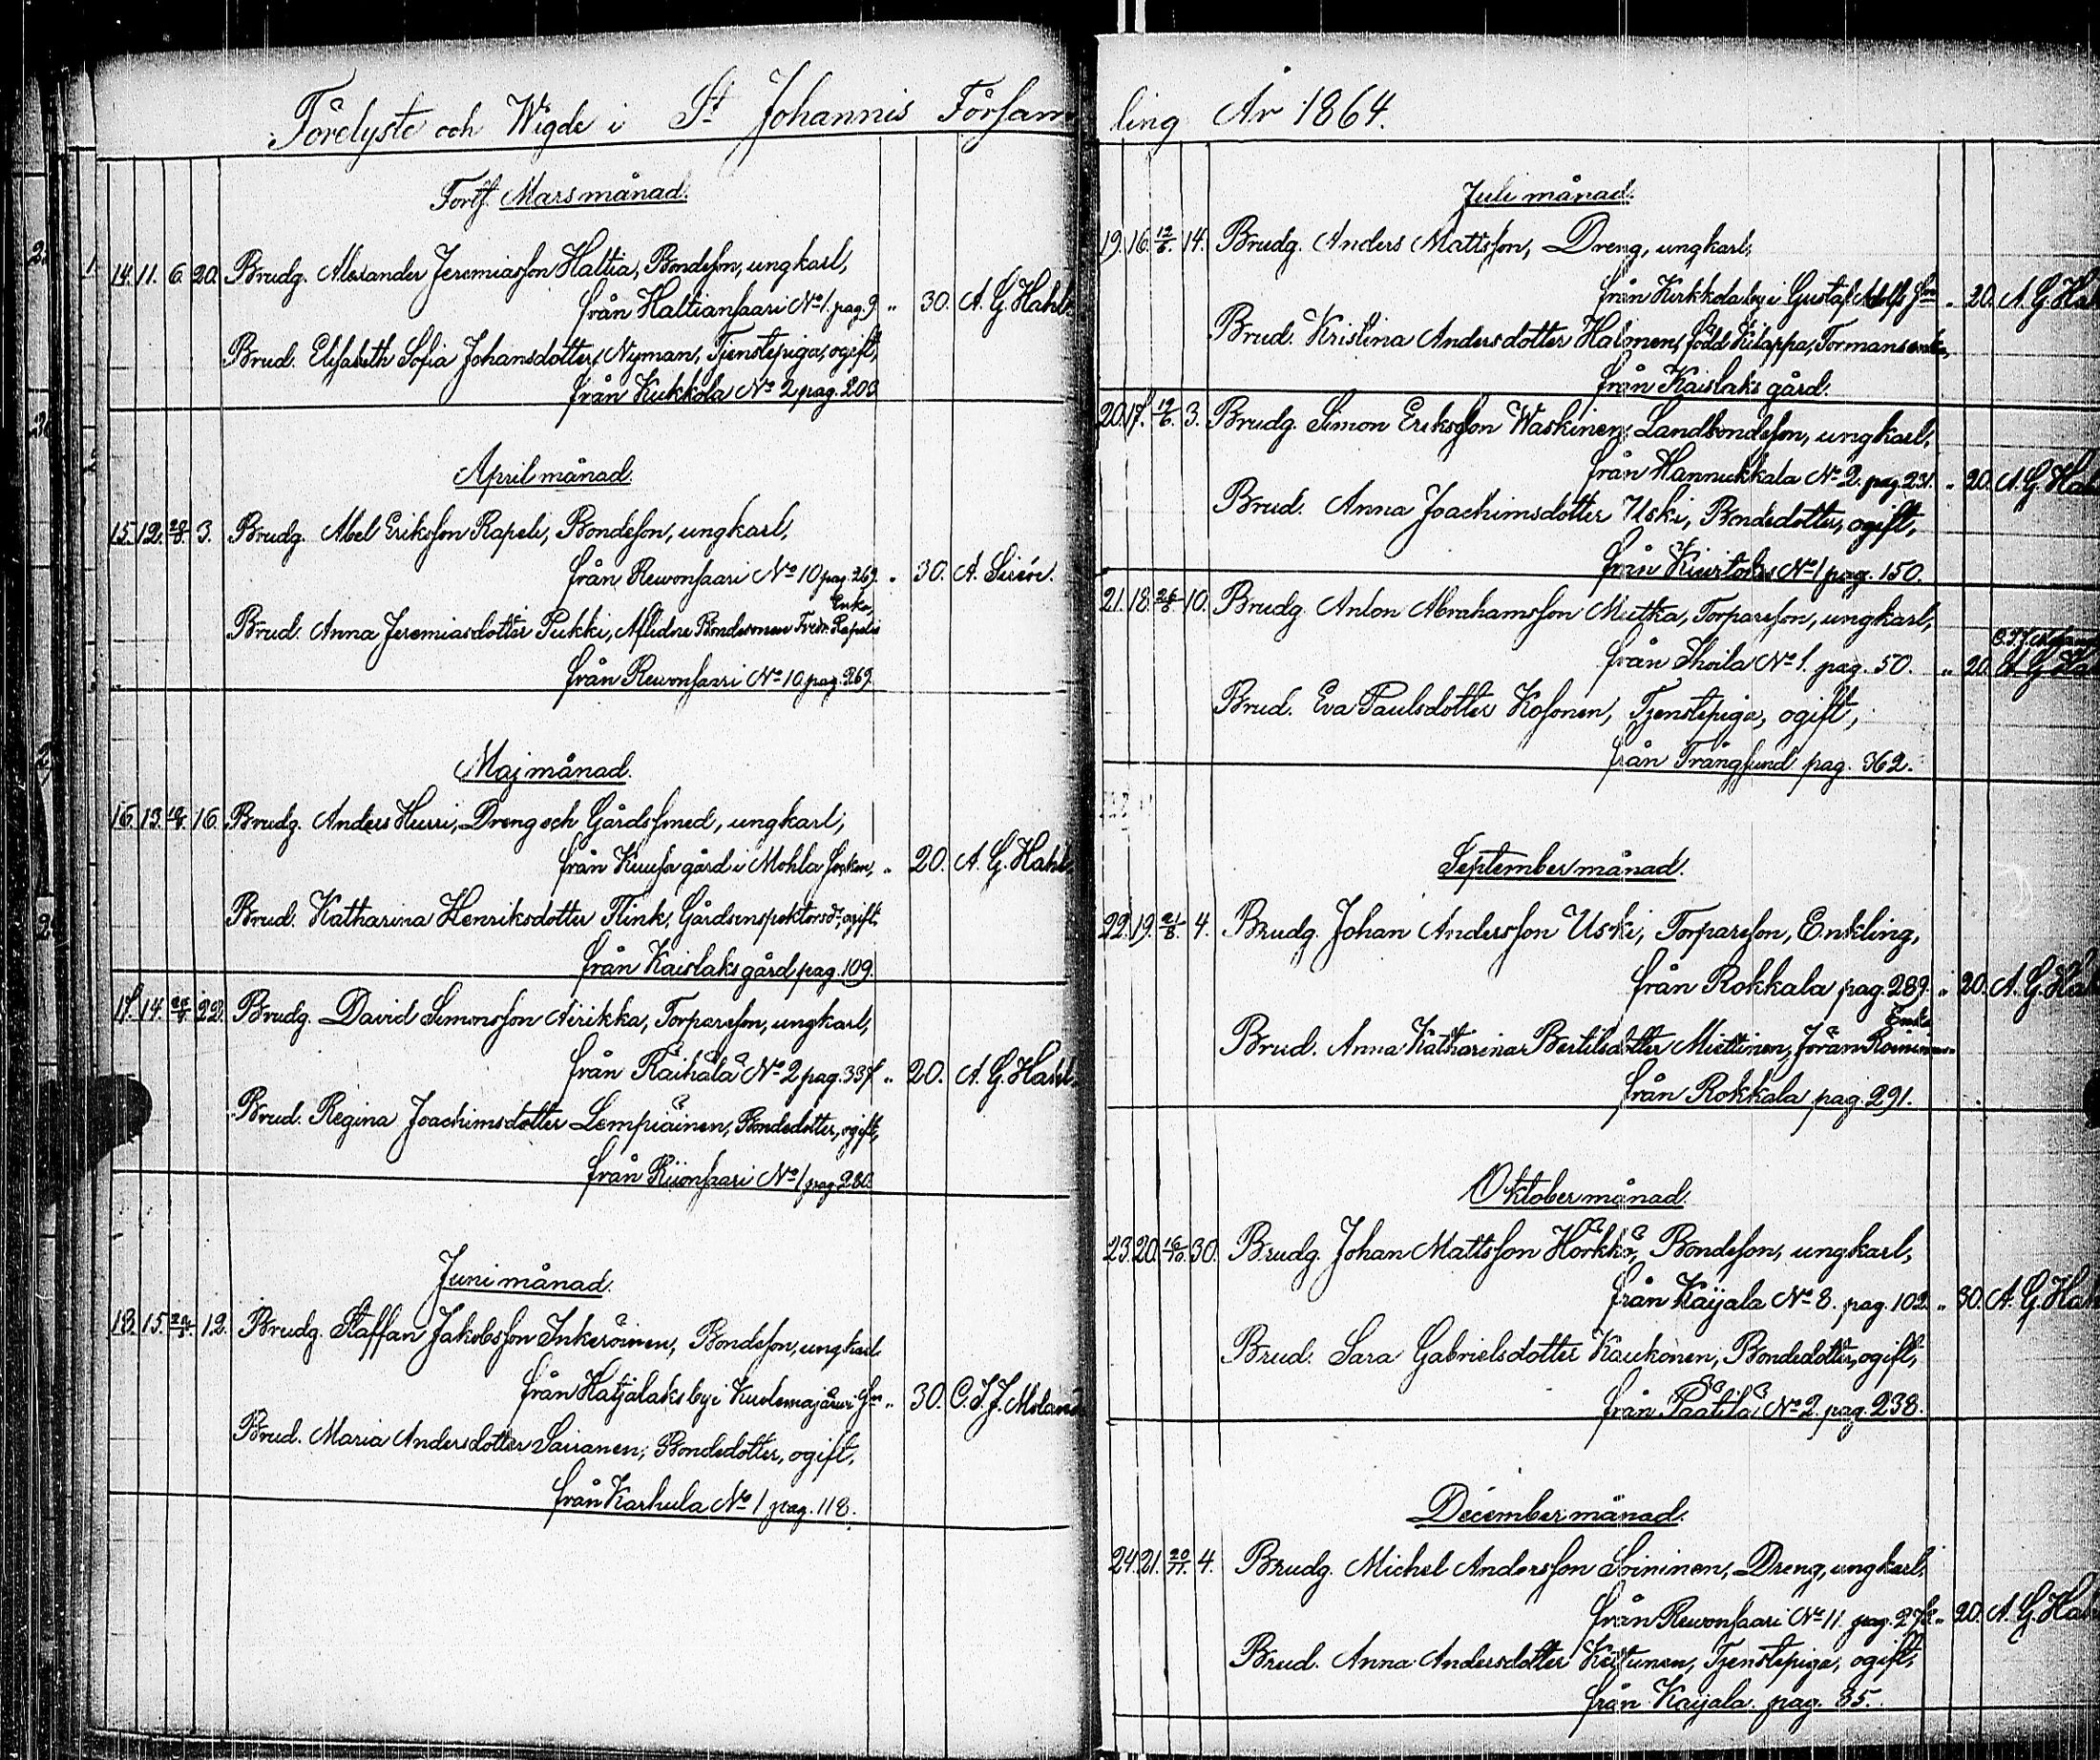 Förelyste och Wigde i St Johannis Församling År 1864.
Fortf. Marsmånad.
14. 11. 6. 20. Brudg. Alexander Jeremiasson Haltia, Bondeson, ungkarl,
från Haltiansaari No 1. pag. 9 " 30. A. G. Hahl.
Brud. Elisabeth Sofia Johansdotter Nyman, Tjenstepiga, ogift,
från Kukkola No 2 pag. 203
April månad.
15. 12. 28/3. 3. Brudg. Abel Eriksson Rapeli, Bondeson, ungkarl,
från Rewonsaari No 10 pag. 269. " 30. A. Sirén.
Enka,
Brud. Anna Jeremiasdotter Pukki, Aflidne Bondesonen Fredr. Rapelis
från Rewonsaari No 10. pag. 269.
Maj månad.
16. 13. 16. Brudg. Anders Hurri, Dreng och Gårdssmed, ungkarl,
från Kuusa gård i Mohla Socken, " 20. A. G. Hahl.
Brud. Katharina Henriksdotter Flink, Gårdsinspektorsdr, ogift.
från Kaislaks gård pag. 109.
17. 14. 22. Brudg. David Simonsson Airikka, Torpareson, ungkarl,
från Räihälä No 2 pag. 337 " 20. A. G. Hahl.
Brud. Regina Joachimsdotter Lempiäinen, Bondedotter, ogift,
från Kiionsaari No 1 pag. 280.
Juni månad.
18. 15. 12. Brudg. Staffan Jakobsson Inkeröinen, Bondeson, ungkarl
från Hatjalaks by i Kuolemajärwi Fm " 30. C. J. J. Moland
Brud. Maria Andersdotter Sairanen, Bondedotter, ogift,
från Karhula No 1 pag. 118.
Juli månad.
19. 16. 12/6. 14. Brudg. Anders Mattsson, Dreng, ungkarl,
från Kirkkola by i Gustaf Adolfs Fm " 20. A. G. Hahl
Brud. Kristina Andersdotter Halonen, född Kilappa, Formansenka,
från Kaislaks gård.
20. 17. 19/6. 3. Brudg. Simon Eriksson Waskinen, Landbondeson, ungkarl,
från Hannukkala No 2. pag. 231. " 20. A. G. Hahl
Brud. Anna Joachimsdotter Uski, Bondedotter, ogift,
från Kiurlaks No 1 pag. 150.
21. 18. 26/6. 10. Brudg. Anton Abrahamsson Mutka, Torpareson, ungkarl,
från Thoila No 1. pag. 50. " 20. A. G. Hahl
Brud. Eva Paulsdotter Kosonen, Tjenstepiga, ogift,
från Trångsund pag. 362.
September månad.
22. 19. 21/8. 4. Brudg. Johan Andersson Uski, Torpareson, Enkling,
från Rokkala pag. 289. " 20. A. G. Hahl
Enka
Brud. Anna Katharina Bertilsdotter Miettinen, Jöran
från Rokkala pag. 291.
Oktober månad.
23. 20. 16/10. 30. Brudg. Johan Mattsson Hörkkö, Bondeson, ungkarl,
från Kaijala No 8. pag. 102 " 30. A. G. Hahl
Brud. Sara Gabrielsdotter Kaukonen, Bondedotter, ogift,
från Päätilä No 2. pag. 238.
December månad.
24. 21. 20/11. 4. Brudg. Michel Andersson Soininen, Dreng, ungkarl,
från Rewonsaari No 11. pag. 273. " 20. A. G. Hahl
Brud. Anna Andersdotter Keitunen, Tjenstepiga, ogift,
från Kaijala pag. 85.